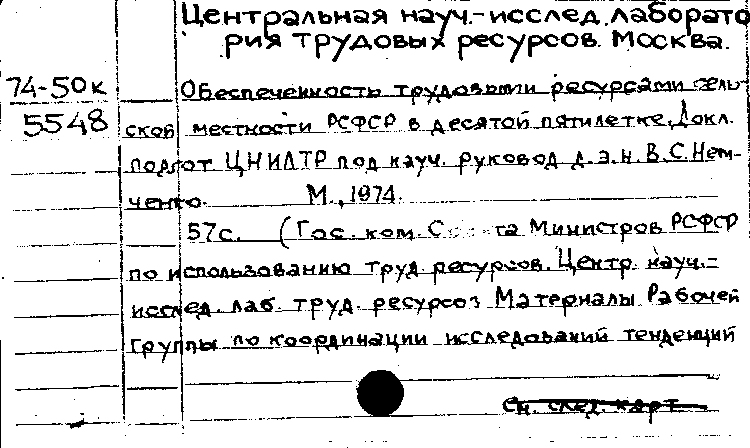 Центральная науч.-исслед. лаборато
рия трудовых ресурсов. Москва.
74-50к
5548
Обеспеченность трудовыми ресурсами сель-
ской местности РСФСР в десятой пятилетке. Докл.
подгот ЦНИЛТР под науч. руковод д.э.н. В.С. Нем-
ченко. М., 1974.
57с. (Гос. ком. Совета Министров РСФСР
по использованию труд. ресурсов. Центр. науч.-
исслед. лаб. труд. ресурсов Материалы Рабочей
группы по координации исследований тенденций
См. след. карт